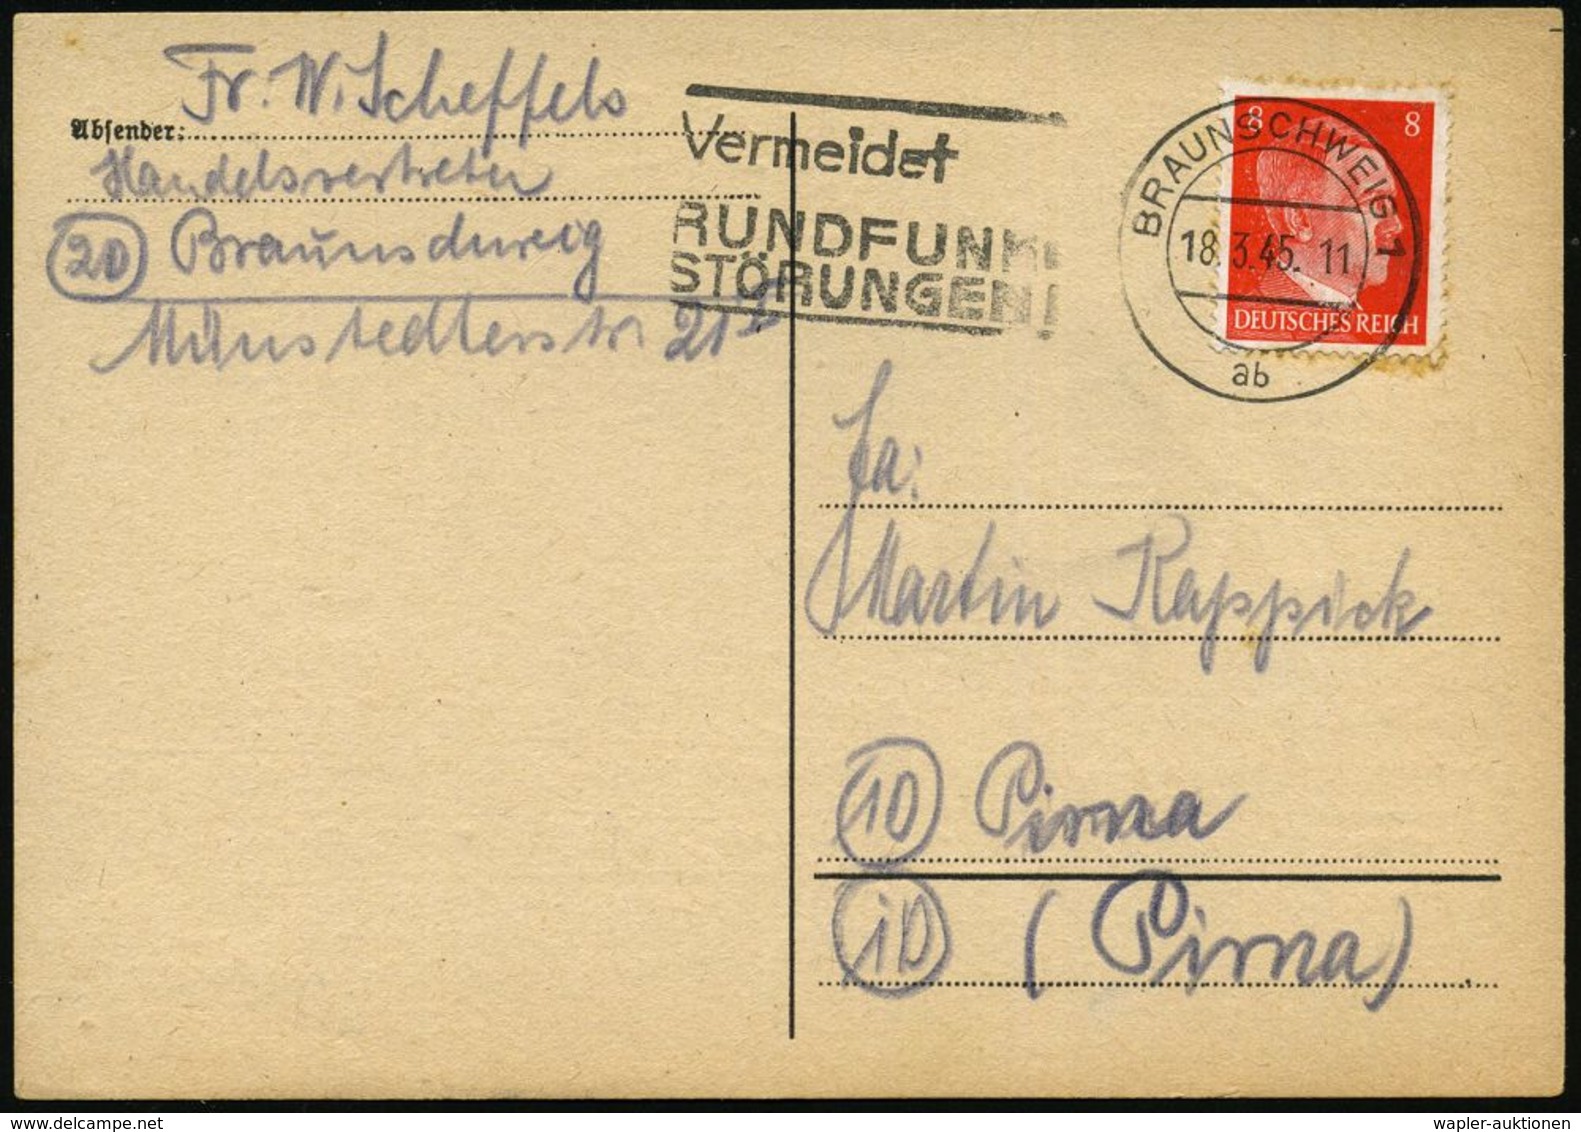 Fr. W. Scheffels
Absender:
Handelsvertreter
20 Braunschweig
Münstedterstr. 21 I
Vermeidet
RUNDFUNK
STÖRUNGEN!
BRAUNSCHWEIG 1
18.3.45. 11
ab
8 8
DEUTSCHES REICH
Fa:
Martin Kappick
10 Pirna
10 (Pirna)
wapler-auktionen